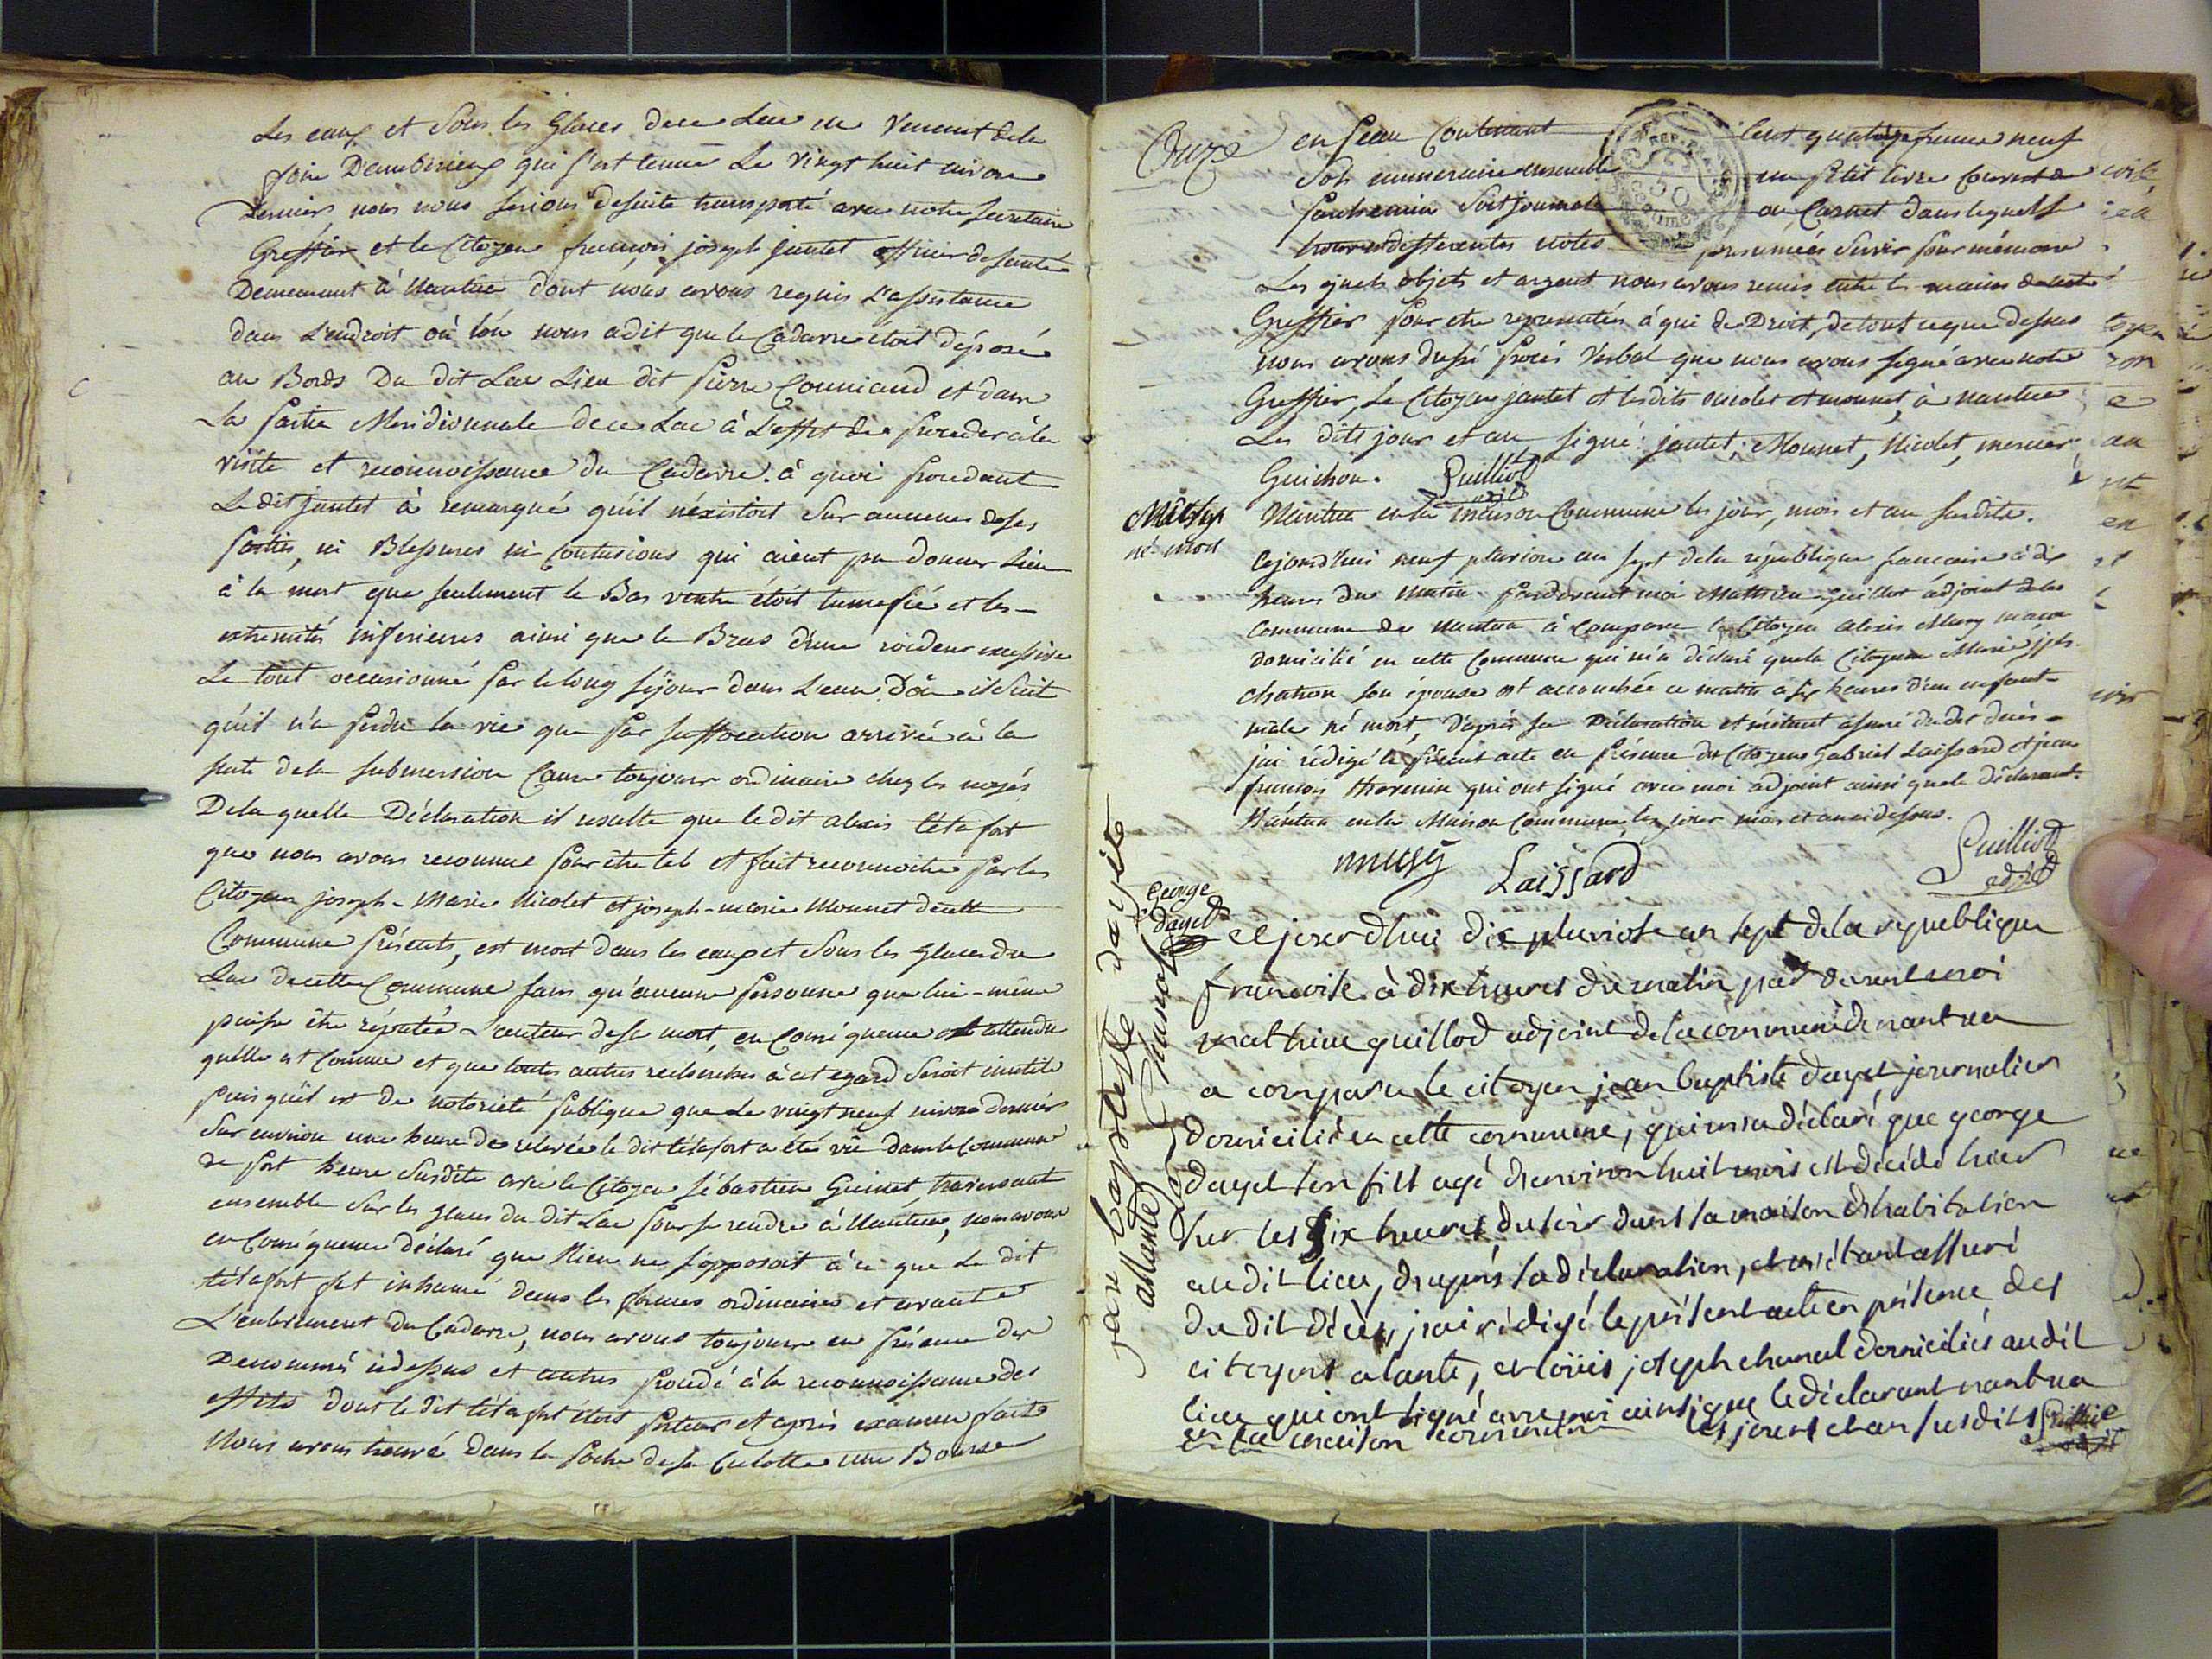 Les eaux et Sous les Glaces de ce Lac en Venant de la
foire D'ambérieux qui s'est tenue Le Vingt huit nivose
Dernier nous nous serions desuite transporté avec notre secretaire
Greffier et le Citoyen françois joseph jantet officier de santé
Demeurant à Nantua dont nous avons requis L'assistance
dans L'endroit où l'on nous a dit que le Cadavre étoit déposé
au Bords Du dit Lac Lieu dit pierre et dans
la partie Meridionnale de ce Lac à L'effet de proceder à la
visite et reconnoissance du Cadavre. à quoi procedant
Le dit jantet à remarqué qu'il n'éxistoit Sur aucunes de ses
parties, ni Blessures ni Contusions qui aient pu donner Lieu
à la mort que seulement le Bas ventre étoit tumefié et les
extremités inferieures ainsi que le Bras d'une roideur excessive
Le tout occasionné par le long séjour dans L'eau D'où il suit
qu'il n'a perdu la vie que par suffocation arrivée à la
suite de la submersion Cause toujours ordinaire chez les noyés
De la quelle Déclaration il resulte que le dit alexis têtafort
que nous avons reconnu pour être tel et fait reconnoitre par les
Citoyens joseph-Marie Nicolet et joseph-marie Mounet de cette
Commune présents, est mort dans les eaux et Sous les glaces du
Lac de cette Commune sans qu'aucune personne que lui-même
puisse être réputée L'auteur de sa mort, en Conséquence et attendu
qu'elle est Connue et que toutes autres recherches à cet egard Seroit inutile
puis qu'il est De notorieté publique que Le vingt neuf nivose dernier
Sur environ une heure de relevée le dit têtafort a été vû dans la Commune
de port heure Susdite avec le Citoyen sébastien Guinet, traversant
ensemble Sur les glaces du dit Lac pour se rendre à Nantua, nous avons
en Conséquence déclaré que Rien ne s'opposoit à ce que Le dit
têtafort fut inhumé dans les formes ordinaires et avant
L'enlevement du Cadavre, nous avons toujours en présence des
Denommés cidessus et autres procedé à la reconnoissance des
effets dont le dit têtafort étoit porteur et après examen fait
Nous avons trouvé dans la poche de sa Culotte une Bourse
Onze
en peau Contenant Cent quatorze francs neuf
Sols numeraire ensemble un petit livre Couvert de
parchemin Soit journal ou Carnet dans lequel se
trouve differentes notes presumées servir pour mémoire
Les quels objets et argent nous avons remis entre les mains de notre
Greffier pour etre representés à qui de Droit, de tout ce que dessus
nous avons dressé procès Verbal que nous avons signé avec notre
Greffier, Le Citoyen jantet et les dits nicolet et mounet, à nantua
Les dits jour et an signé: jantet, Mounet, Nicolet, mercier
Guichon. Guilliot
adjt
Nantua en la maison Commune les jour, mois et an susdits.
Mussy
né mort
Cejourd'hui neuf pluviose an sept de la république francaise à dix
heures du matin pardevant moi Mathieu Guillot adjoint de la
Commune de Nantua à Comparu le Citoyen alexis Mussy maçon
domicilié en cette Commune qui m'a déclaré que la Citoyenne Marie
son épouse est accouchée ce matin à six heures d'un enfant
male né mort, d'après sa Déclaration et m'étant assuré du dit décès
j'ai rédigé le présent acte en présence des Citoyens Gabriel Laissard et jean
francois thevenin qui ont signé avec moi adjoint ainsi que le déclarant.
Nantua en la Maison Commune, les jour mois et an ci dessus.
mussy Laissard Guilliot
adjt
George
dayet
cejourdhui dix pluviose an sept de la republique
francoise à dix heures du matin par devant moi
mathieu guillod adjoint de la commune de nantua
a comparu le citoyen jean baptiste dayet journalier
domicilié en cette commune, qui m'a déclaré que george
dayet son fils agé d'environ huit mois est décédé hier
sur les six heures du soir dans sa maison d'habitation
au dit lieu, d'après sa déclaration, et m'étant assuré
du dit décès, j'ai rédigé le présent acte en présence des
citoyens alante, et loüis joseph chanal domiciliés au dit
lieu qui ont signé avec moi ainsi que le déclarant nantua
en la maison commune les jours et an susdits Guilliot
adjt
jean baptiste dayet
allante Chanal